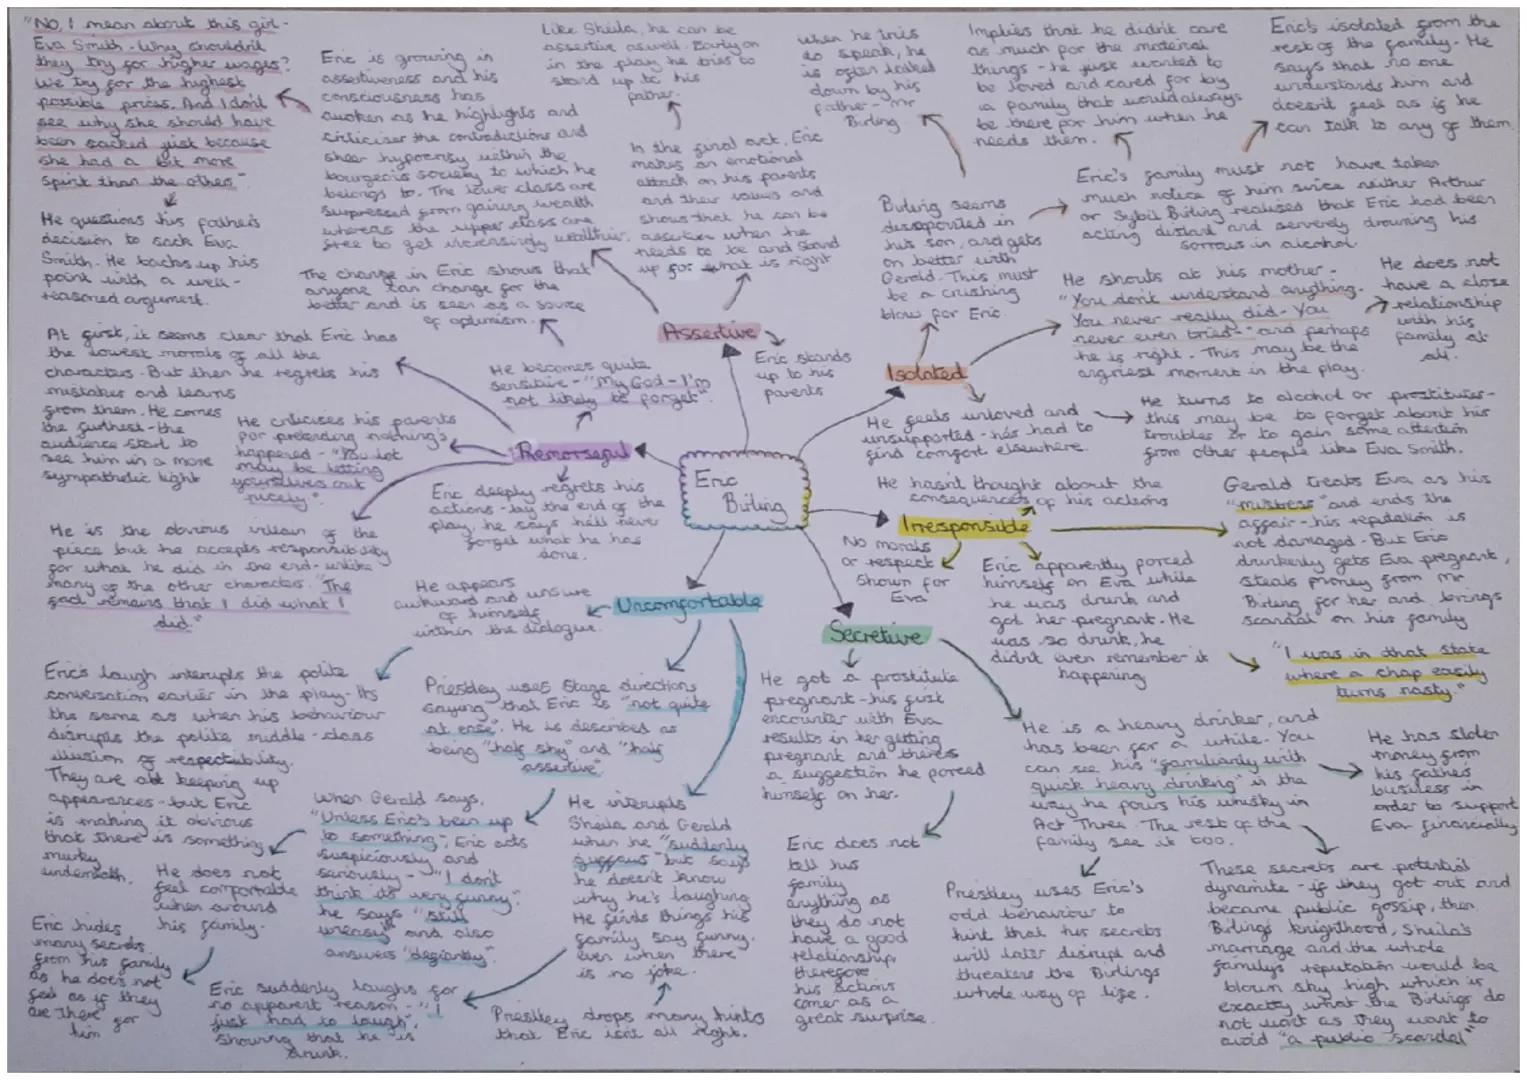 "No, I mean about this girl -
Eva Smith. Why shouldn't
they try for higher wages?
We try for the highest
possible prices. And I don't
see why she should have
been sacked just because
she had a bit more
spirit than the others."
He questions his father's
decision to sack Eva
Smith. He backs up his
point with a well-
reasoned argument.
Eric is growing in
assertiveness and his
consciousness has
awoken as he highlights and
criticises the contradictions and
sheer hypocrisy within the
bourgeois society to which he
belongs to. The lower class are
suppressed from gaining wealth
whereas the upper class are
free to get increasingly wealthier.
Like Sheila, he can be
assertive aswell. Early on
in the play he tries to
stand up to his
father.
In the final act, Eric
makes an emotional
attack on his parents
and their values and
shows that he can be
assertive when he
needs to be and stand
up for what is right
Assertive
Eric stands
up to his
parents
when he tries
to speak, he
is often talked
down by his
father - Mr
Birling.
Implies that he didn't care
as much for the material
things - he just wanted to
be loved and cared for by
a family that would always
be there for him when he
needs them.
Eric's isolated from the
rest of the family. He
says that no one
understands him and
doesn't feel as if he
can talk to any of them
Birling seems
dissapointed in
his son, and gets
on better with
Gerald. This must
be a crushing
blow for Eric.
Eric's family must not have taken
much notice of him since neither Arthur
or Sybil Birling realised that Eric had been
acting distant and serverely drowning his
sorrows in alcohol.
He shouts at his mother -
"You don't understand anything.
You never really did - You
never even tried-" and perhaps
he is right. This may be the
angriest moment in the play.
He does not
have a close
relationship
with his
family at
all.
Isolated
He feels unloved and
unsupported - he's had to
find comfort elsewhere.
He turns to alcohol or prostitutes -
this may be to forget about his
troubles or to gain some attention
from other people like Eva Smith.
The change in Eric shows that
anyone can change for the
better and is seen as a source
of optimism.
At first, it seems clear that Eric has
the lowest morals of all the
characters. But then he regrets his
mistakes and learns
from them. He comes
the furthest - the
audience start to
see him in a more
sympathetic light
He becomes quite
sensitive - "My God - I'm
not likely to forget".
He criticises his parents
for pretending nothing's
happened - "You lot
may be letting
yourselves out
nicely."
Remorseful
Eric deeply regrets his
actions - by the end of the
play, he says he'll never
forget what he has
done.
He is the obvious villain of the
piece but he accepts responsibility
for what he did in the end - unlike
many of the other characters. "The
fact remains that I did what I
did."
Eric
Birling
He hasn't thought about the
consequences of his actions
Irresponsible
No morals
or respect
shown for
Eva
Eric apparently forced
himself on Eva while
he was drunk and
got her pregnant. He
was so drunk, he
didn't even remember it
happening
Gerald treats Eva as his
"mistress" and ends the
affair - his reputation is
not damaged. But Eric
drunkenly gets Eva pregnant,
steals money from Mr
Birling for her and brings
scandal on his family
"I was in that state
where a chap easily
turns nasty."
Uncomfortable
He appears
awkward and unsure
of himself
within the dialogue.
Eric's laugh interrupts the polite
conversation earlier in the play. Its
the same as when his behaviour
disrupts the polite middle-class
illusion of respectability.
They are all keeping up
appearances - but Eric
is making it obvious
that there is something
murky
underneath.
Priestley uses stage directions
saying that Eric is "not quite
at ease". He is described as
being "half shy" and "half
assertive".
When Gerald says,
"Unless Eric's been up
to something", Eric acts
suspiciously and
seriously - "I don't
think it's very funny".
he says "still
uneasy" and also
answers "defiantly".
He does not
feel comfortable
when around
his family.
Eric hides
many secrets
from his family
as he does not
feel as if they
are there for
him
Eric suddenly laughs for
no apparent reason - "I
just had to laugh",
showing that he is
drunk.
He interupts
Sheila and Gerald
when he "suddenly
guffaws" but says
he doesn't know
why he's laughing
He finds things his
family say funny,
even when there
is no joke.
Priestley drops many hints
that Eric isn't all right.
Secretive
He got a prostitute
pregnant - his first
encounter with Eva
results in her getting
pregnant and there's
a suggestion he forced
himself on her.
Eric does not
tell his
family
anything as
they do not
have a good
relationship
therefore
his actions
comes as a
great surprise.
He is a heavy drinker, and
has been for a while. You
can see his "familiarity with
quick heavy drinking" in the
way he pours his whisky in
Act Three. The rest of the
family see it too.
Priestley uses Eric's
odd behaviour to
hint that his secrets
will later disrupt and
threaten the Birlings
whole way of life.
He has stolen
money from
his father's
business in
order to support
Eva financially
These secrets are potential
dynamite - if they got out and
became public gossip, then
Birling's knighthood, Sheila's
marriage and the whole
family's reputation would be
blown sky high which is
exactly what the Birlings do
not want as they want to
avoid "a public scandal"